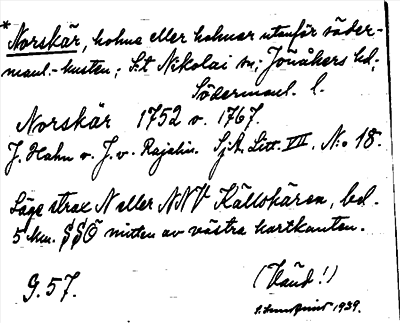 * Norskär, holme eller holmar utanför söder-
manl.-kusten; S:t Nikolai sn; Jönåkers hd;
Södermanl. l.
Norskär 1752 o. 1767.
J. Hahn o. J. v. Rajalin. SjA. Litt. VII. N:o 18.
Läge strax N eller NNV Källskären, bd.
5 km. SSÖ mitten av västra kartkanten.
G. 57.
(Vänd!)
1939.